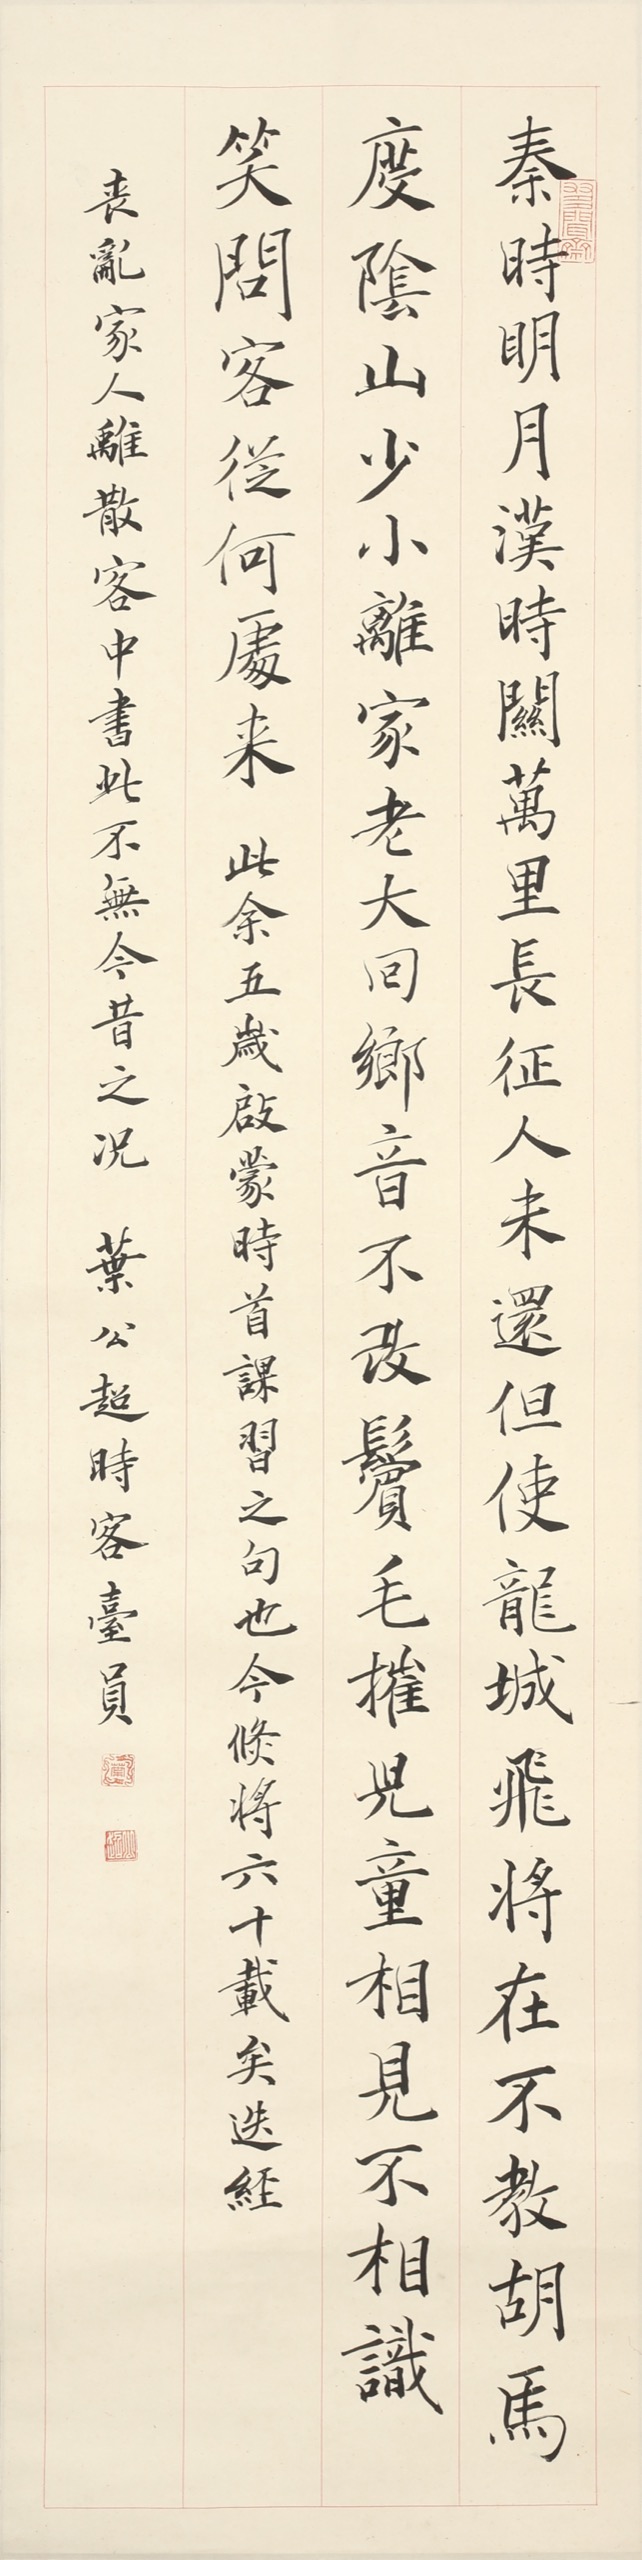 秦時明月漢時關萬里長征人未還但使龍城飛將在不教胡馬
度陰山少小離家老大回鄉音不改鬢毛摧兒童相見不相識
笑問客從何處来 此余五歲啟蒙時首課習之句也今倏將六十載矣迭經
喪亂家人離散客中書此不無今昔之况 葉公超時客臺員